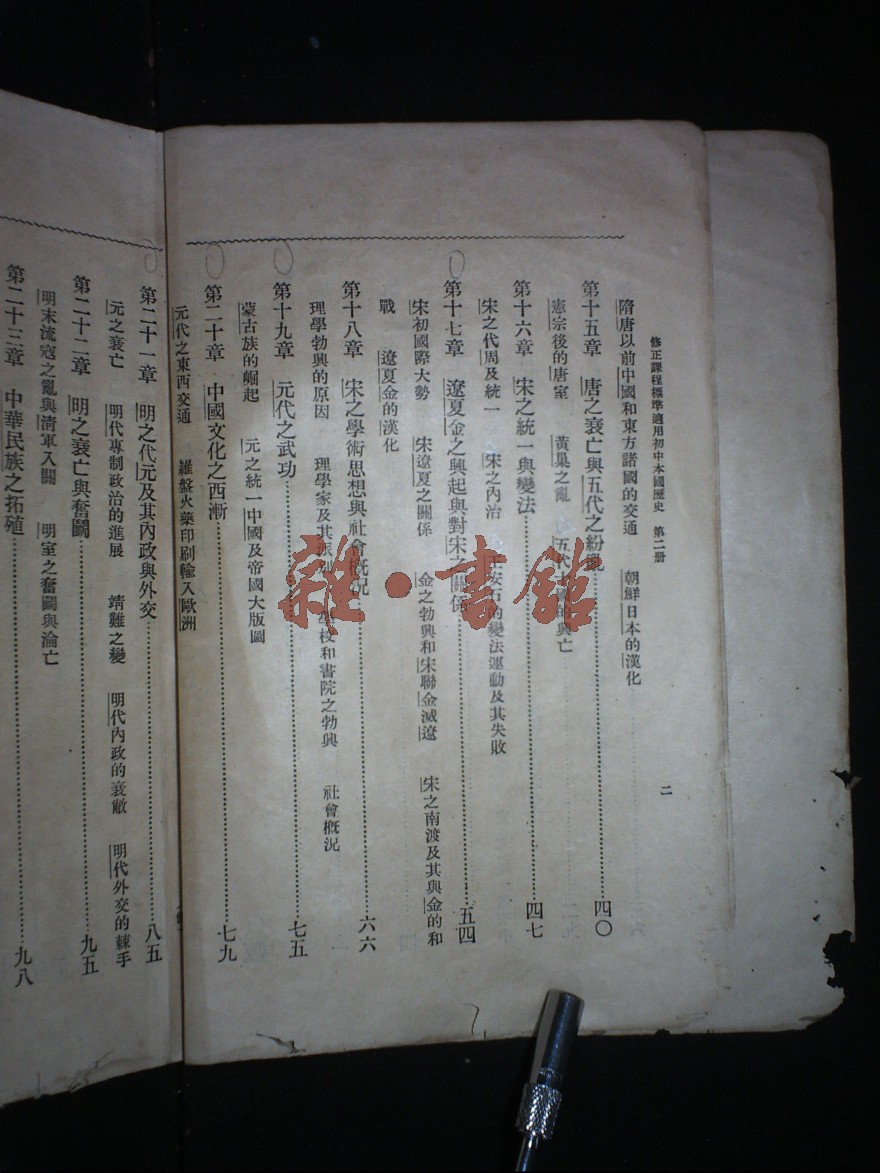 修正課程標準適用初中本國歷史 第二册 二
隋唐以前中國和東方諸國的交通 朝鮮日本的漢化
第十五章 唐之衰亡與五代之紛亂 四〇
憲宗後的唐室 黃巢之亂 五代 的興亡
第十六章 宋之統一與變法 四七
宋之代周及統一 宋之內治 王安石的變法運動及其失敗
第十七章 遼夏金之興起與對宋之關係 五四
宋初國際大勢 宋遼夏之關係 金之勃興和宋聯金滅遼 宋之南渡及其與金的和
戰 遼夏金的漢化
第十八章 宋之學術思想與社會概况 六六
理學勃興的原因 理學家及其派別 學校和書院之勃興 社會概況
第十九章 元代之武功 七五
蒙古族的崛起 元之統一中國及帝國大版圖
第二十章 中國文化之西漸 七九
元代之東西交通 羅盤火藥印刷輸入歐洲
第二十一章 明之代元及其內政與外交 八五
元之衰亡 明代專制政治的進展 靖難之變 明代內政的衰敝 明代外交的棘手
第二十二章 明之衰亡與奮鬭 九五
明末流寇之亂與淸軍入關 明室之奮鬭與淪亡
第二十三章 中華民族之拓殖 九八
雜·書館